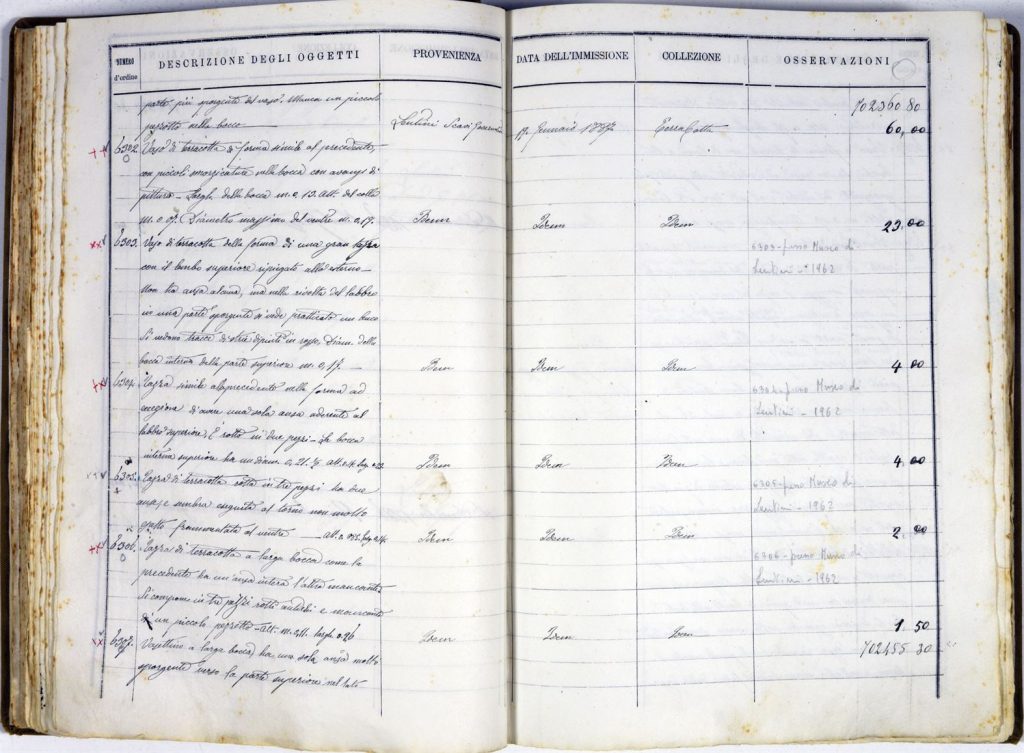 NUMERO d'ordine
DESCRIZIONE DEGLI OGGETTI
PROVENIENZA
DATA DELL'IMMISSIONE
COLLEZIONE
OSSERVAZIONI
parte più sporgente del vaso. Manca un piccolo
pezzetto nella bocca
Lentini Scavi
17 Gennaio 1887
Terracotta
702360 80
60,00
6302. Vaso di terracotta di forma simile al precedente,
con piccole smozzicature nella bocca con avanzi di
pittura - Largh. della bocca m. 0, 13. Alt. del collo
m. 0, 07. Diametro massimo del ventre m. 0, 17.
Idem
Idem
Idem
23,00
6303. Vaso di terracotta della forma di una gran tazza
con il lembo superiore ripiegato all'esterno -
Non ha ansa alcuna, ma nella rivolta del labbro
in una parte sporgente si vede praticato un buco
Si vedono tracce di strie dipinte in rosso. Diam. della
bocca interna della parte superiore m. 0, 17.
Idem
Idem
Idem
4,00
6303 - presso Museo di
Lentini - 1962
6304. Tazza simile al precedente nella forma ad
eccezione di avere una sola ansa aderente al
labbro superiore. È rotto in due pezzi - La bocca
interna superiore ha un diam. 0, 21.
Idem
Idem
Idem
4,00
6304 - presso Museo di
Lentini - 1962
6305. Tazza di terracotta rotta in tre pezzi ha due
anse e sembra eseguita al torno non molto
frammentata al ventre
Idem
Idem
Idem
2,00
6305 - presso Museo di
Lentini - 1962
6306. Tazza di terracotta a larga bocca come la
precedente ha un'ansa intera l'altra mancante.
Si compone in tre pezzi rotti antichi e mancante
di un piccolo pezzetto - Alt. m. largh. 0.26
Idem
Idem
Idem
1.50
6306 - presso Museo di
Lentini - 1962
6307. Vasettino a larga bocca, ha una sola ansa molto
sporgente verso la parte superiore nel lato
702455 30